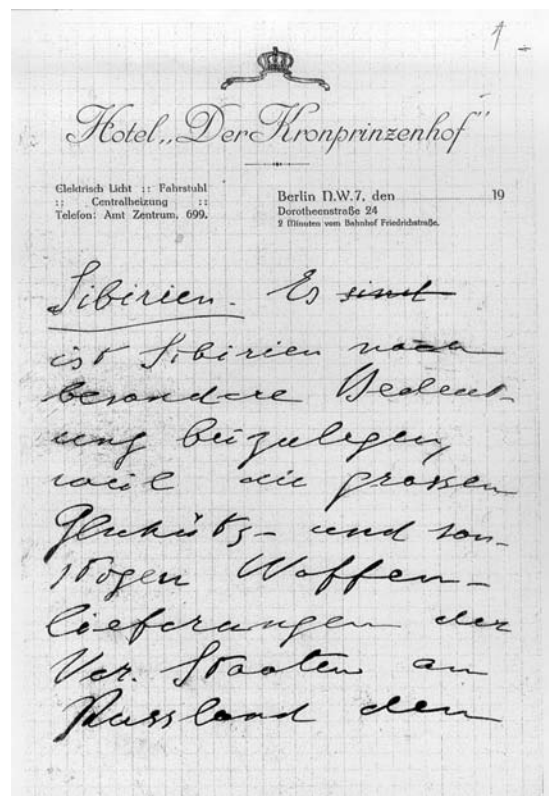 Hotel „Der Kronprinzenhof“
Elektrisch Licht :: Fahrstuhl
:: Centralheizung ::
Telefon: Amt Zentrum, 699.
Berlin N.W.7, den 19
Dorotheenstraße 24
2 Minuten vom Bahnhof Friedrichstraße.
Sibirien. Es sind
ist Sibirien noch
besondere Bedeut-
ung beizulegen,
weil die grossen
Geschütz- und son-
stigen Waffen-
lieferungen der
Ver. Staaten an
Russland den